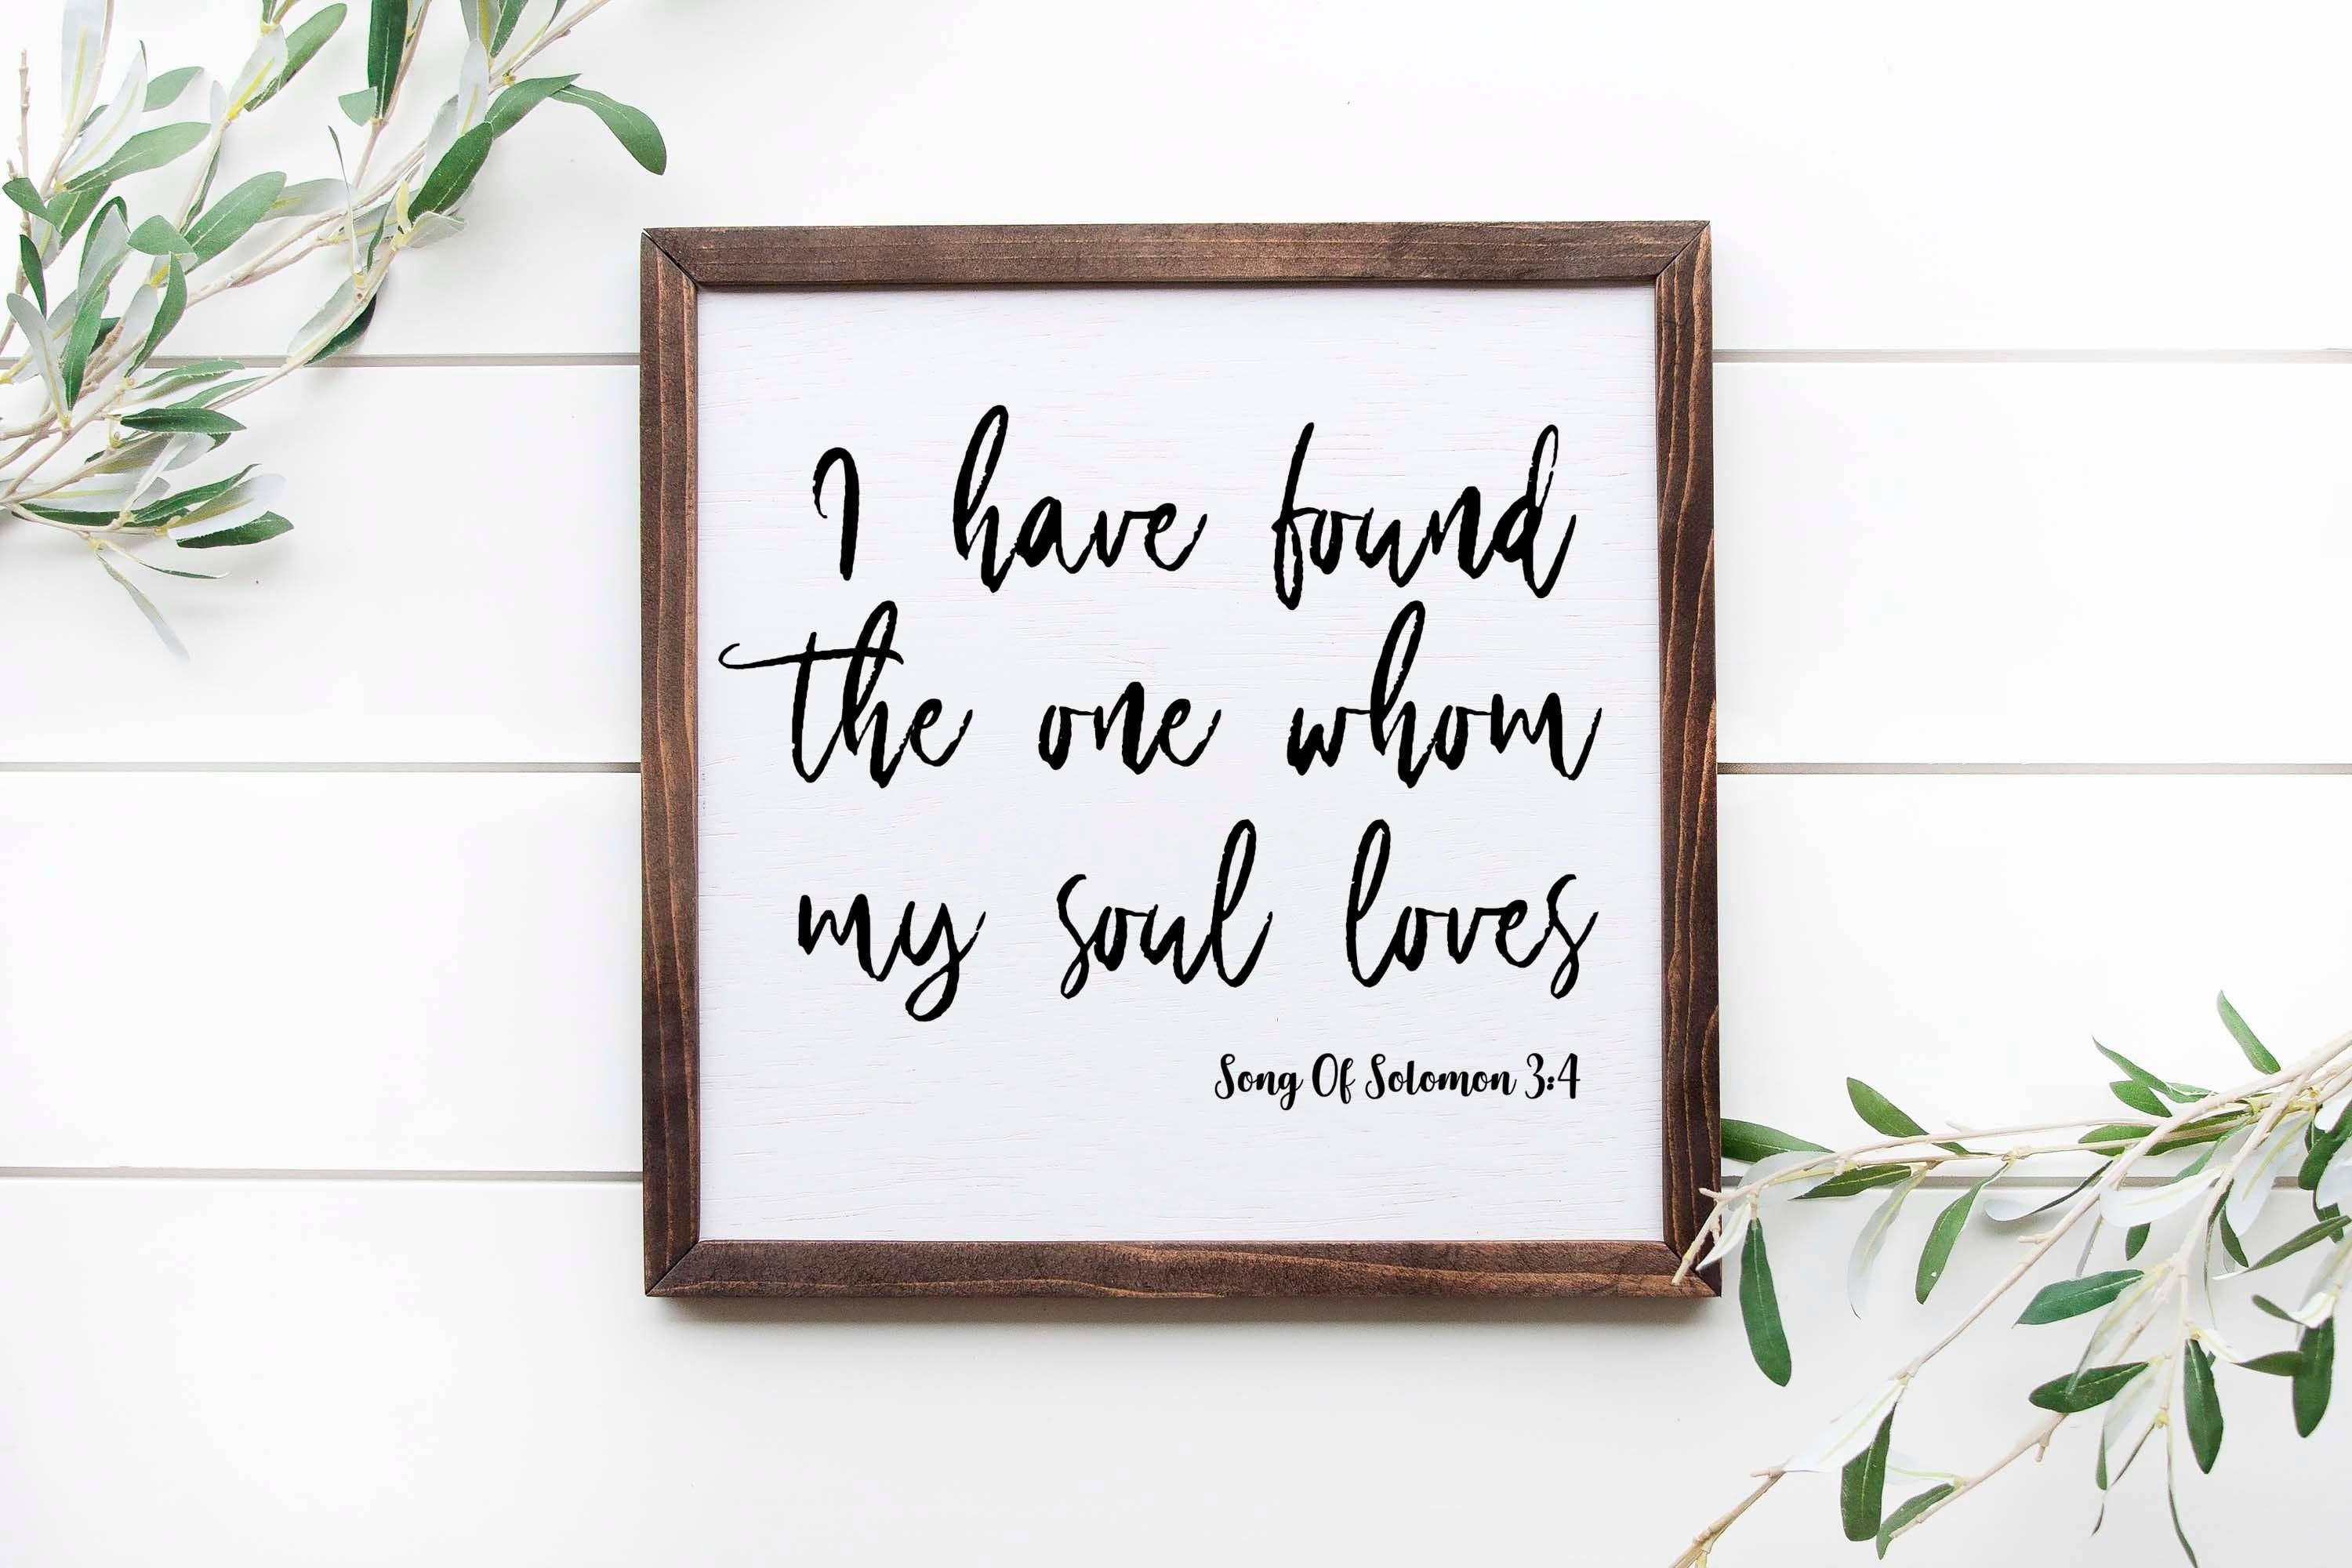 I have found
the one whom
my soul loves
Song Of Solomon 3:4